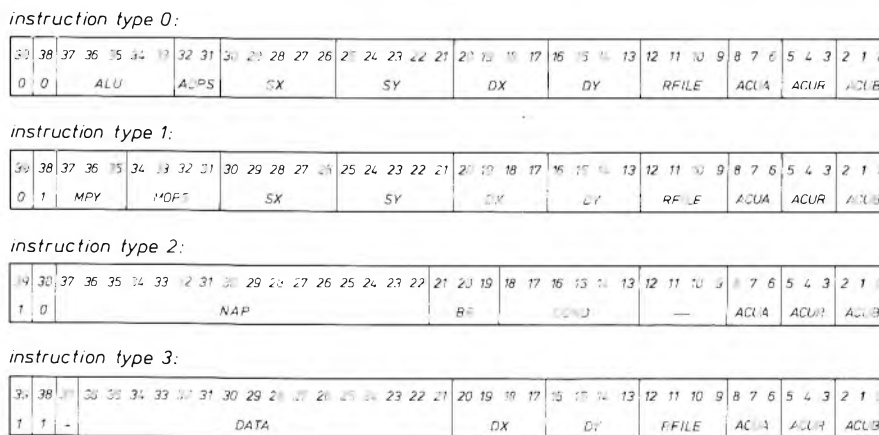 instruction type 0:
39 38 37 36 35 34 33 32 31 30 29 28 27 26 25 24 23 22 21 20 19 18 17 16 15 14 13 12 11 10 9 8 7 6 5 4 3 2 1
0 0 ALU AOPS SX SY DX DY RFILE ACUA ACUR ACUB
instruction type 1:
39 38 37 36 35 34 33 32 31 30 29 28 27 26 25 24 23 22 21 20 19 18 17 16 15 14 13 12 11 10 9 8 7 6 5 4 3 2 1
0 1 MPY MOPS SX SY DX DY RFILE ACUA ACUR ACUB
instruction type 2:
39 38 37 36 35 34 33 32 31 30 29 28 27 26 25 24 23 22 21 20 19 18 17 16 15 14 13 12 11 10 9 8 7 6 5 4 3 2 1
1 0 NAP BR COND — ACUA ACUR ACUB
instruction type 3:
39 38 37 36 35 34 33 32 31 30 29 28 27 26 25 24 23 22 21 20 19 18 17 16 15 14 13 12 11 10 9 8 7 6 5 4 3 2 1
1 1 - DATA DX DY RFILE ACUA ACUR ACUB